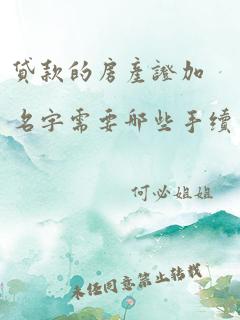 貸款的房產證加
名字需要哪些手續
何必姐姐
未经同意禁止转载